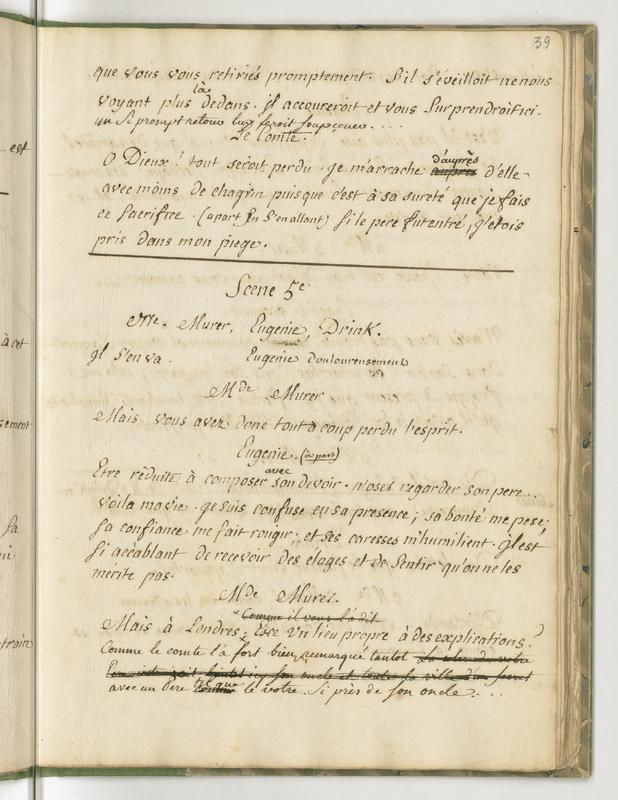 39
que vous vous retiriés promptement. S'il s'éveilloit ne nous
là
voyant plus dedans. jl accoureroit et vous Surprendroit ici.
un Si prompt retour lux feroit soupçoner. ...
Le Comte.
O Dieux! tout seroit perdu. je m'arrache d'auprès aupres d'elle
avec moins de chagrin puisque c'est à sa sureté que je fais
ce Sacrifice. (apart En S'en allant) Si le pere fut entré, j'etois
pris dans mon piege.
Scene 5e
Me. Murer, Eugenie, Drink.
jl S'en va. Eugenie Douloureusement
Mde Murer
Mais vous avez donc tout à coup perdu l'esprit.
Eugenie. (à part)
Etre réduite à composer avec son devoir. n'oser regarder son pere..
voila ma vie. je suis confuse en sa presence; sa bonté me pese;
Sa confiance me fait rougir; et ses caresses m'humilient. jl est
Si accablant de recevoir des éloges et de Sentir qu'on ne les
mérite pas.
Mde Murer.
Comme il vous l'a dit
Mais à Londres; Un lieu propre à des explications?
Comme le comte l'a fort bien remarqué tantot
avec un Pere tel que comme le votre. Si près de son oncle....
est
à cet
sement
Sa